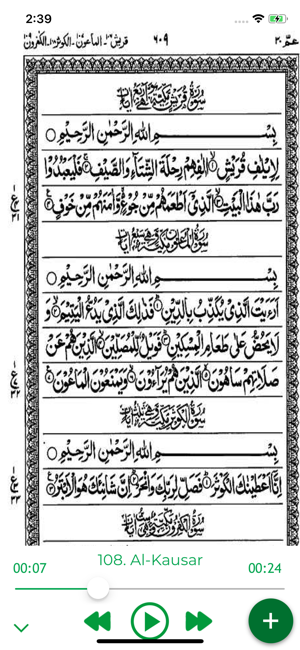 2:39
عمّ ٣٠
٦٠٩
قريش ١٠٦ - الماعون ١٠٧ - الكوثر ١٠٨ - الكفرون ١٠٩
بِسْمِ اللهِ الرَّحْمٰنِ الرَّحِيْمِ
لِاِيْلٰفِ قُرَيْشٍ اٖلٰفِهِمْ رِحْلَةَ الشِّتَآءِ وَالصَّيْفِ فَلْيَعْبُدُوْا
رَبَّ هٰذَا الْبَيْتِ الَّذِيْٓ اَطْعَمَهُمْ مِّنْ جُوْعٍ وَّاٰمَنَهُمْ مِّنْ خَوْفٍ
بِسْمِ اللهِ الرَّحْمٰنِ الرَّحِيْمِ
اَرَءَيْتَ الَّذِيْ يُكَذِّبُ بِالدِّيْنِ فَذٰلِكَ الَّذِيْ يَدُعُّ الْيَتِيْمَ وَ
لَا يَحُضُّ عَلٰى طَعَامِ الْمِسْكِيْنِ فَوَيْلٌ لِّلْمُصَلِّيْنَ الَّذِيْنَ هُمْ عَنْ
صَلَاتِهِمْ سَاهُوْنَ الَّذِيْنَ هُمْ يُرَآءُوْنَ وَيَمْنَعُوْنَ الْمَاعُوْنَ
بِسْمِ اللهِ الرَّحْمٰنِ الرَّحِيْمِ
اِنَّآ اَعْطَيْنٰكَ الْكَوْثَرَ فَصَلِّ لِرَبِّكَ وَانْحَرْ اِنَّ شَانِئَكَ هُوَ الْاَبْتَرُ
108. Al-Kausar
00:07
00:24